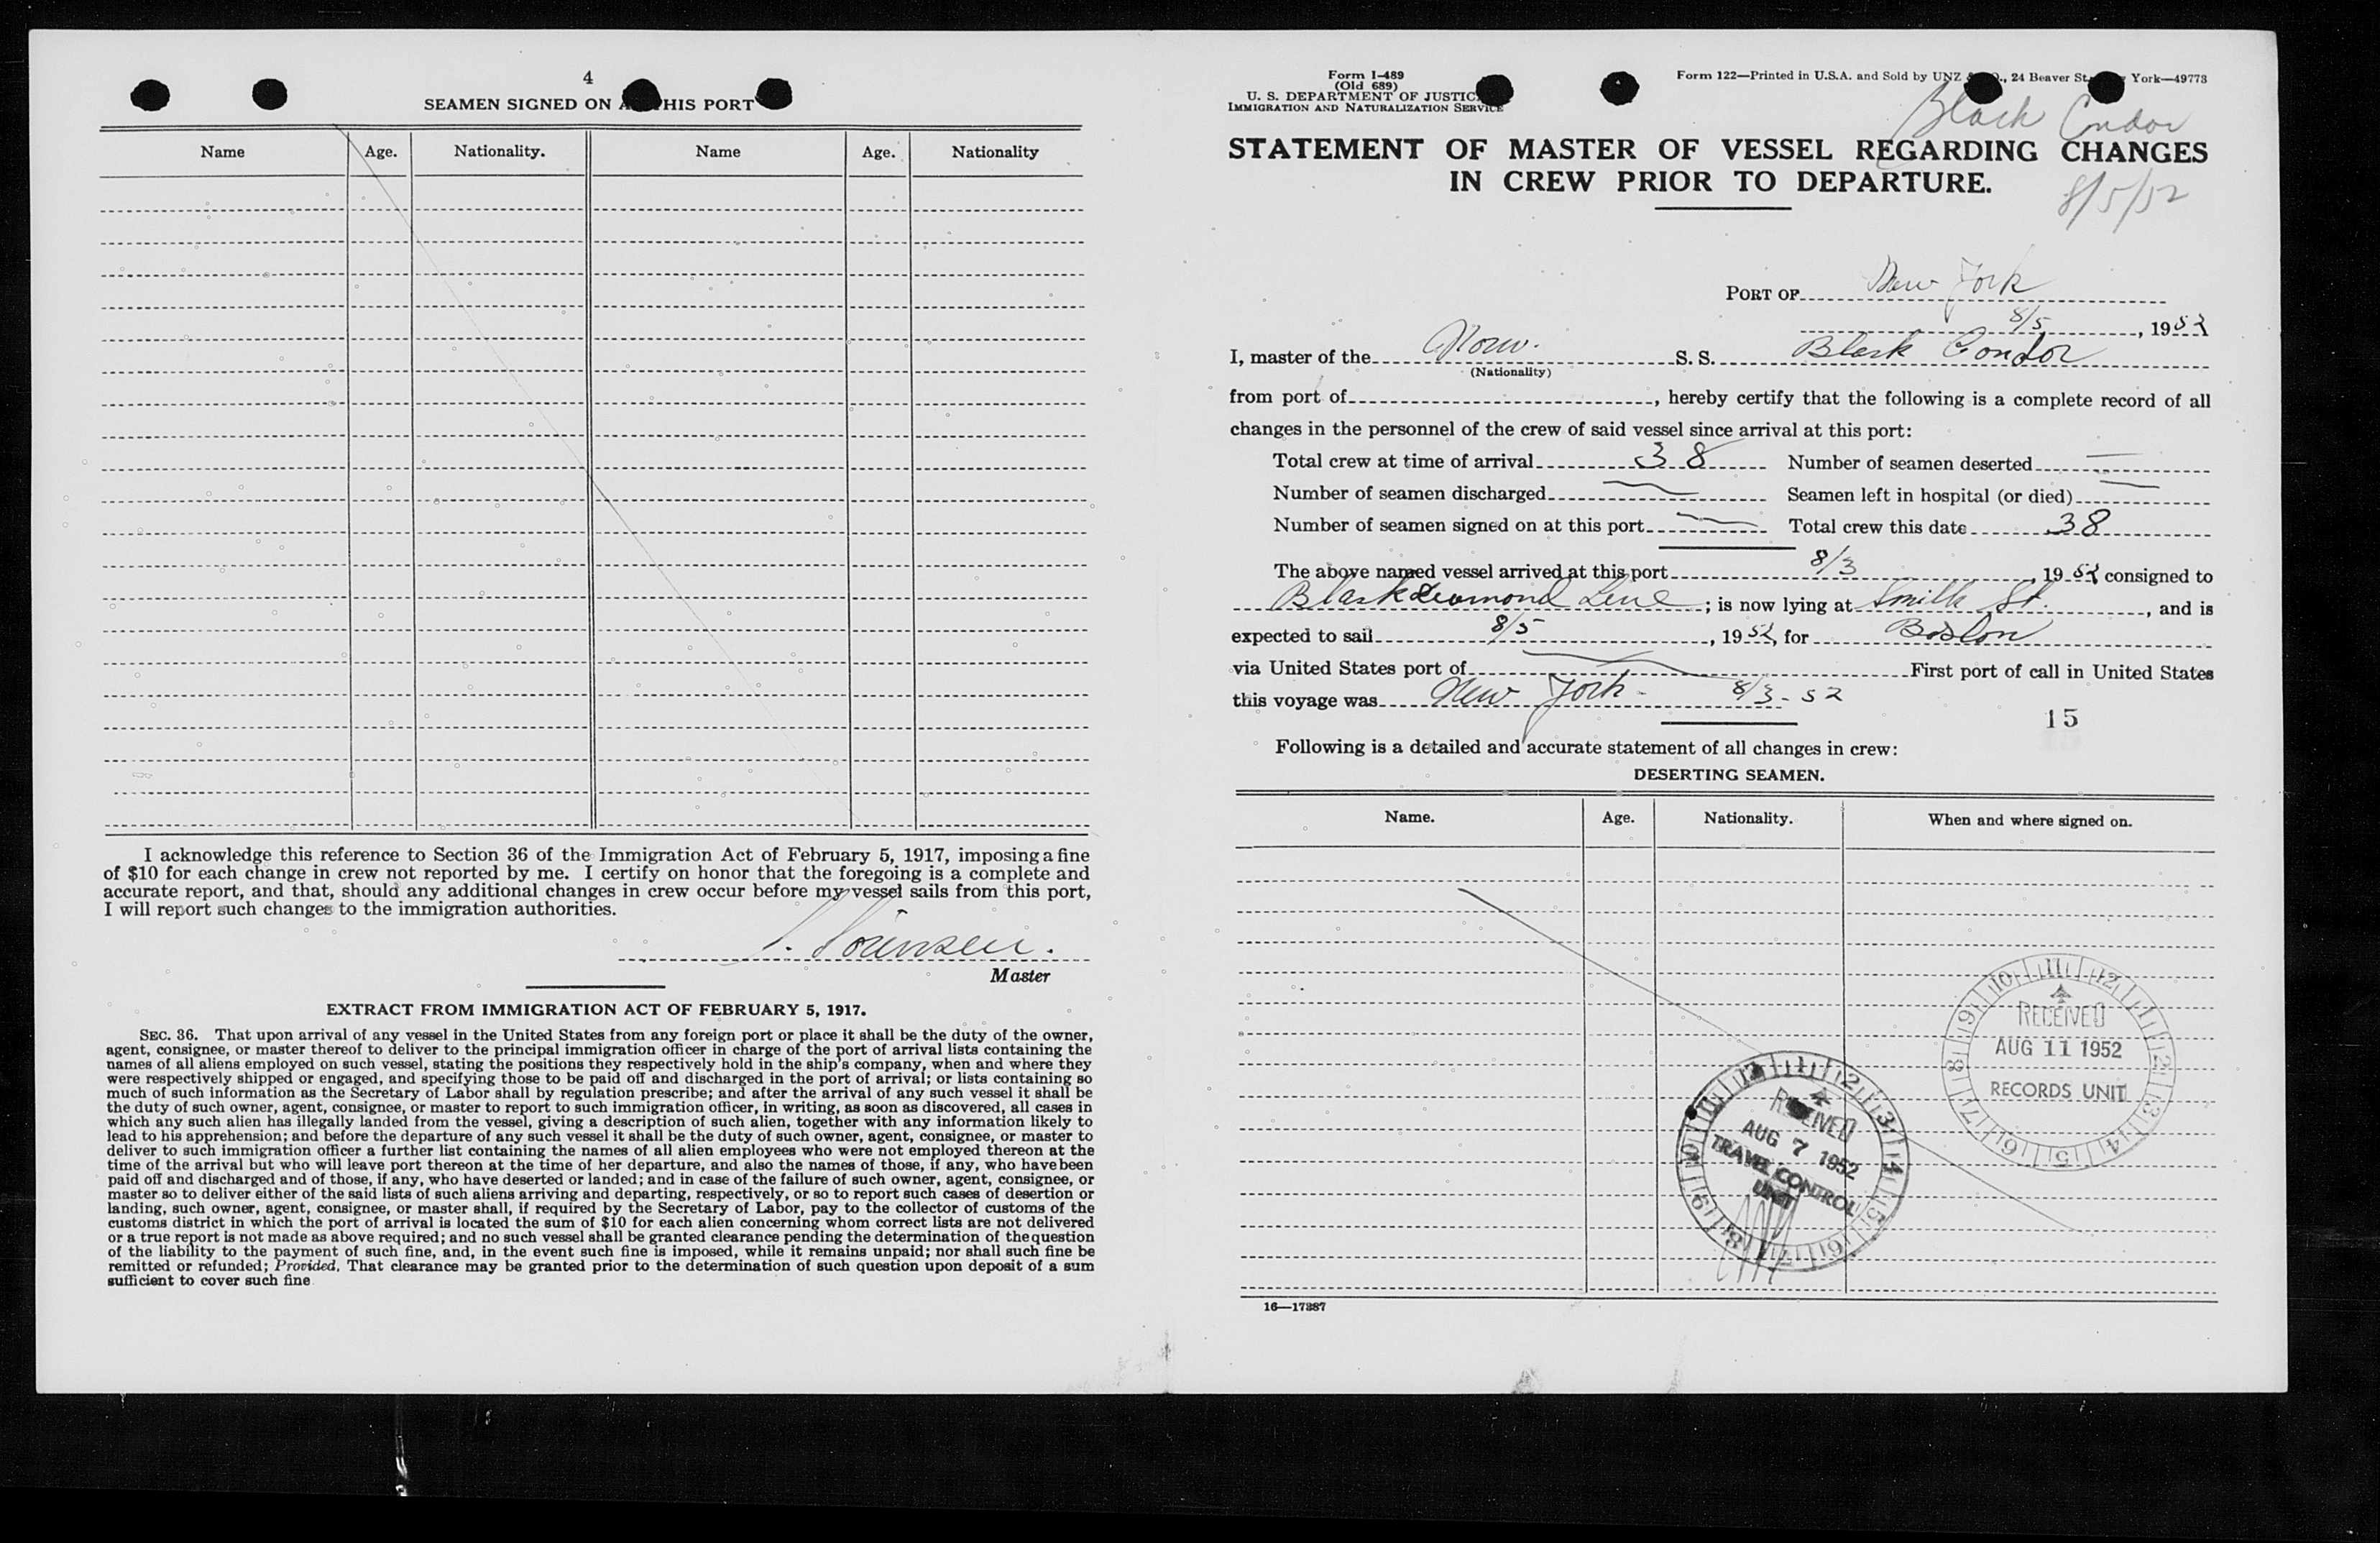 4
SEAMEN SIGNED ON HIS PORT
Name Age. Nationality. Name Age. Nationality
I acknowledge this reference to Section 36 of the Immigration Act of February 5, 1917, imposing a fine
of $10 for each change in crew not reported by me. I certify on honor that the foregoing is a complete and
accurate report, and that, should any additional changes in crew occur before my vessel sails from this port,
I will report such changes to the immigration authorities.
Master
EXTRACT FROM IMMIGRATION ACT OF FEBRUARY 5, 1917.
SEC. 36. That upon arrival of any vessel in the United States from any foreign port or place it shall be the duty of the owner,
agent, consignee, or master thereof to deliver to the principal immigration officer in charge of the port of arrival lists containing the
names of all aliens employed on such vessel, stating the positions they respectively hold in the ship's company, when and where they
were respectively shipped or engaged, and specifying those to be paid off and discharged in the port of arrival; or lists containing so
much of such information as the Secretary of Labor shall by regulation prescribe; and after the arrival of any such vessel it shall be
the duty of such owner, agent, consignee, or master to report to such immigration officer, in writing, as soon as discovered, all cases in
which any such alien has illegally landed from the vessel, giving a description of such alien, together with any information likely to
lead to his apprehension; and before the departure of any such vessel it shall be the duty of such owner, agent, consignee, or master to
deliver to such immigration officer a further list containing the names of all alien employees who were not employed thereon at the
time of the arrival but who will leave port thereon at the time of her departure, and also the names of those, if any, who have been
paid off and discharged and of those, if any, who have deserted or landed; and in case of the failure of such owner, agent, consignee, or
master so to deliver either of the said lists of such aliens arriving and departing, respectively, or so to report such cases of desertion or
landing, such owner, agent, consignee, or master shall, if required by the Secretary of Labor, pay to the collector of customs of the
customs district in which the port of arrival is located the sum of $10 for each alien concerning whom correct lists are not delivered
or a true report is not made as above required; and no such vessel shall be granted clearance pending the determination of the question
of the liability to the payment of such fine, and, in the event such fine is imposed, while it remains unpaid; nor shall such fine be
remitted or refunded; Provided, That clearance may be granted prior to the determination of such question upon deposit of a sum
sufficient to cover such fine
Form I-489
(Old 689)
U. S. DEPARTMENT OF JUSTIC
IMMIGRATION AND NATURALIZATION SERVICE
Form 122—Printed in U.S.A. and Sold by UNZ ., 24 Beaver St York—49773
Black Condor
STATEMENT OF MASTER OF VESSEL REGARDING CHANGES
IN CREW PRIOR TO DEPARTURE.
8/5/52
PORT OF New York
8/5, 1952
I, master of the Norw. S. S. Black Condor
(Nationality)
from port of, hereby certify that the following is a complete record of all
changes in the personnel of the crew of said vessel since arrival at this port:
Total crew at time of arrival 38 Number of seamen deserted —
Number of seamen discharged — Seamen left in hospital (or died) —
Number of seamen signed on at this port — Total crew this date 38
The above named vessel arrived at this port 8/3, 1952 consigned to
Blackdiamond Line; is now lying at Smith St., and is
expected to sail 8/5, 1952, for Boston
via United States port of — First port of call in United States
this voyage was New York - 8/3 - 52
15
Following is a detailed and accurate statement of all changes in crew:
DESERTING SEAMEN.
Name. Age. Nationality. When and where signed on.
RECEIVED
AUG 11 1952
RECORDS UNIT
RECEIVED
AUG 7 1952
TRAVEL CONTROL
UNIT
16—17387